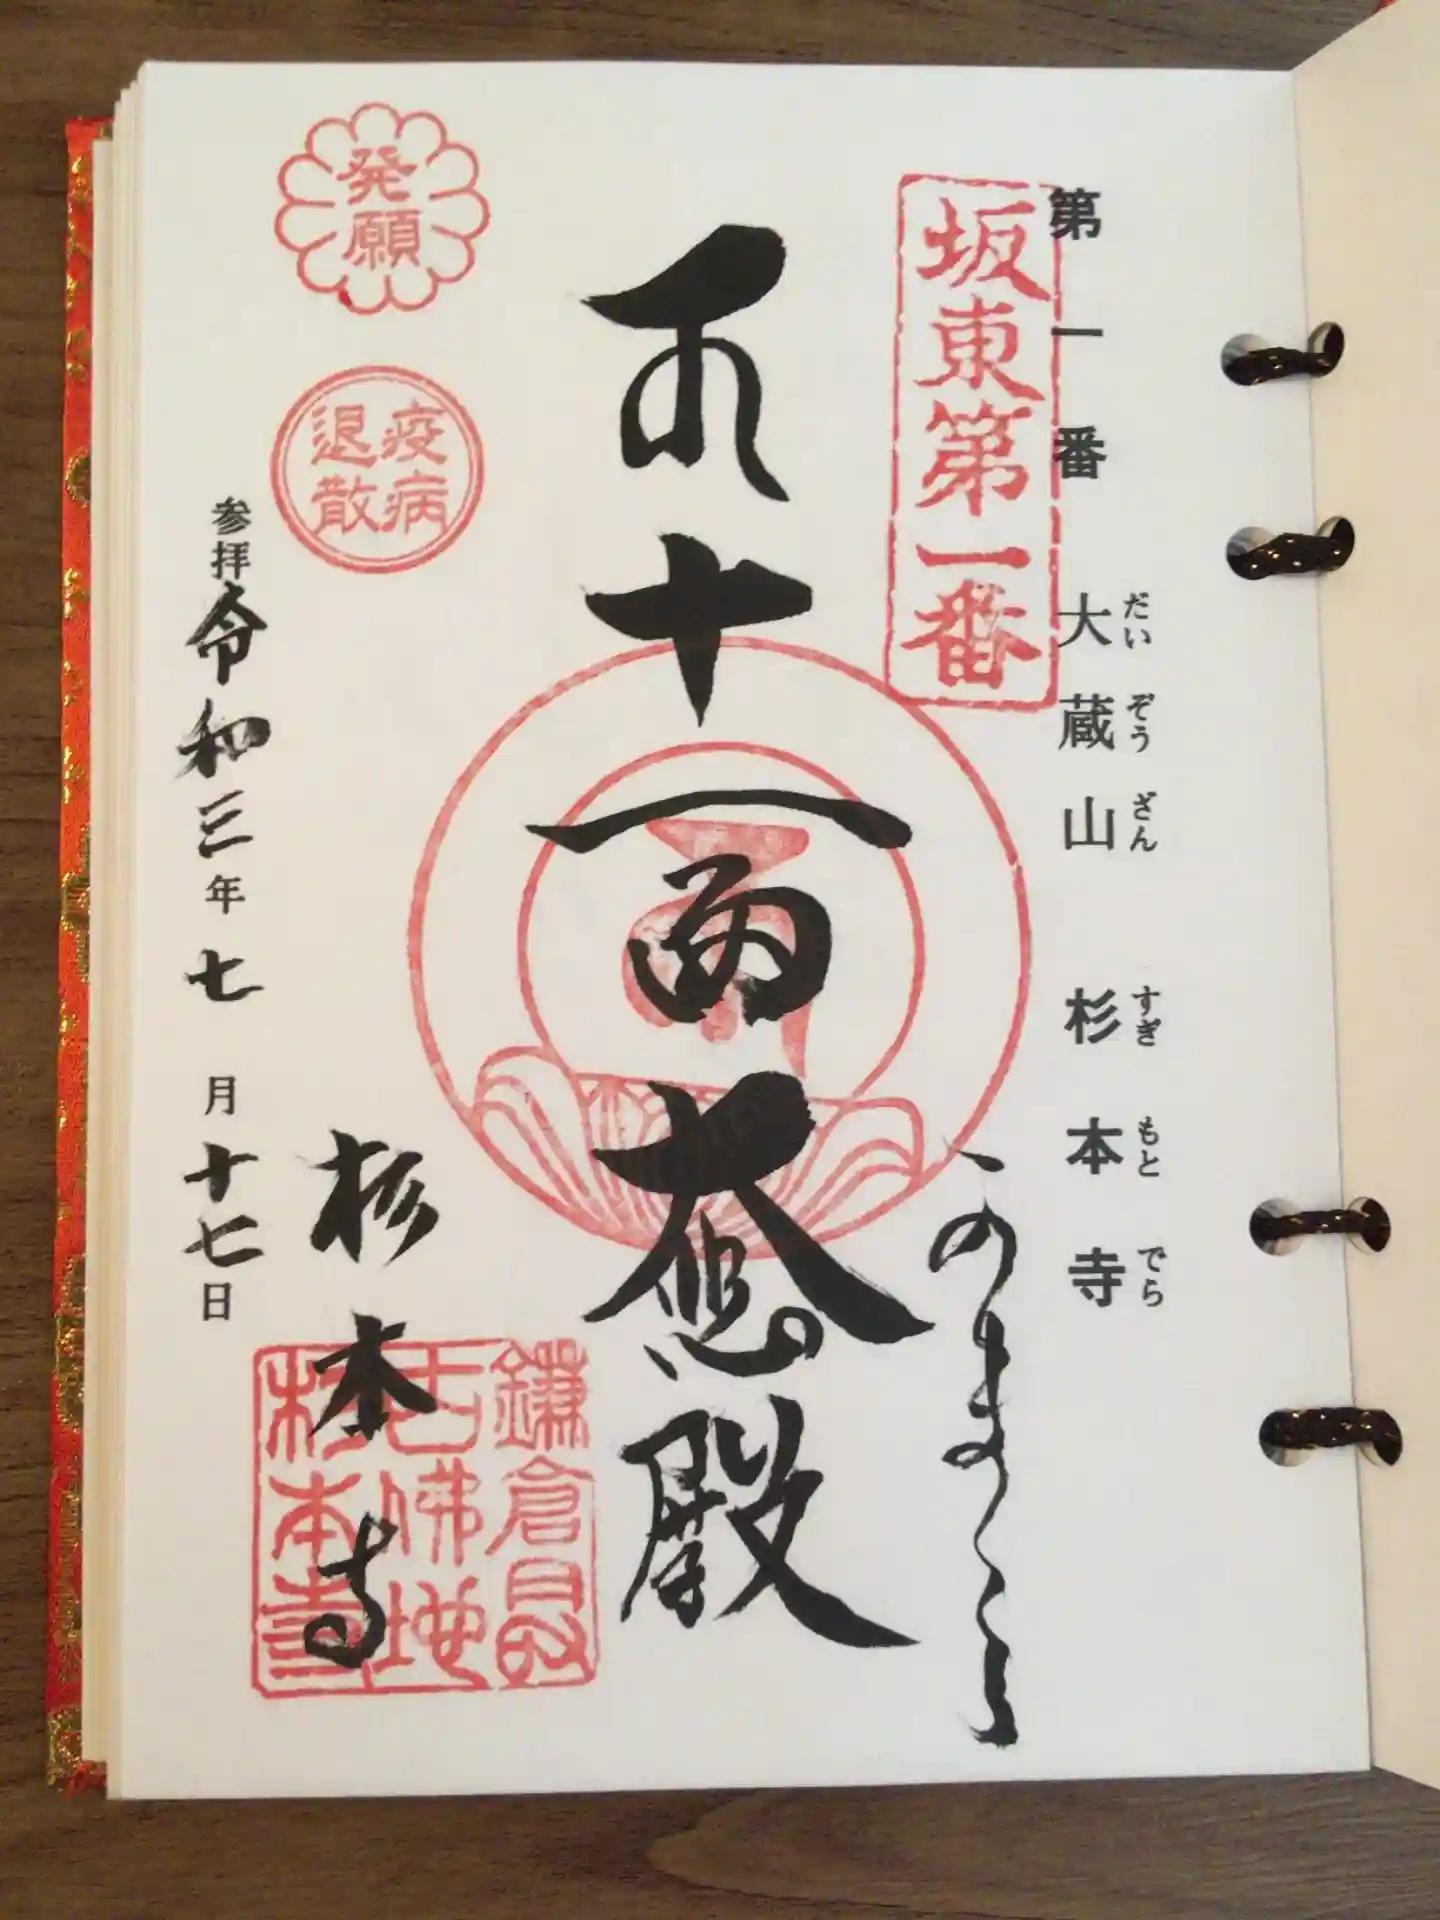 第一番 大蔵山 杉本寺
だいぞうざん すぎもとでら
坂東第一番
十一面大悲殿
発願
疫病
退散
杉本寺
鎌倉最
古佛地
杉本寺
参拝 令和三年 七 月十七日